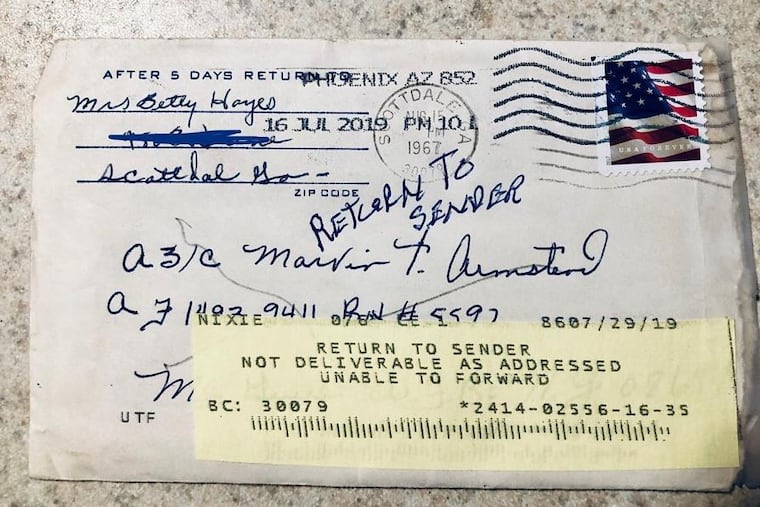 AFTER 5 DAYS RETURN TO
PHOENIX AZ 852
Mrs Betty Hayes
16 JUL 2019 PM 10 L
Scottdal Ga -
ZIP CODE
SCOTTDALE, GA
AUG 15
PM
1967
30079
USA FOREVER
RETURN TO
SENDER
A3/C Marvin T. Armstead
A F 1492 9411 Bx # 5597
NIXIE 8607/29/19
RETURN TO SENDER
NOT DELIVERABLE AS ADDRESSED
UNABLE TO FORWARD
UTF
BC: 30079 *2414-02556-16-35